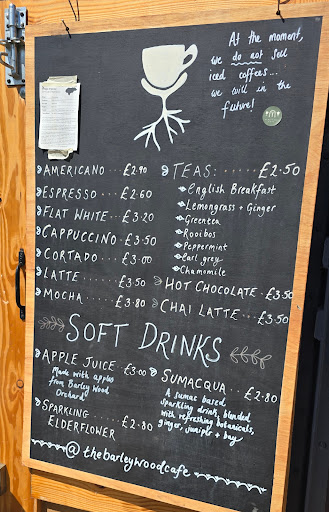 At the moment,
we do not sell
iced coffees...
we will in the
future!
AMERICANO ... £2.90
ESPRESSO .... £2.60
FLAT WHITE ... £3.20
CAPPUCCINO . £3.50
CORTADO ... £3.00
LATTE ...... £3.50
MOCHA ...... £3.80
TEAS: ...... £2.50
English Breakfast
Lemongrass + Ginger
Greentea
Rooibos
Peppermint
Earl grey
Chamomile
HOT CHOCOLATE . £3.50
CHAI LATTE ... £3.50
SOFT DRINKS
APPLE JUICE ... £3.00
Made with apples
from Barley Wood
Orchard!
SPARKLING ....
ELDERFLOWER £2.80
SUMACQUA .... £2.80
A sumac based
sparkling drink, blended
with refreshing botanicals,
ginger, juniper + bay
@thebarleywoodcafe